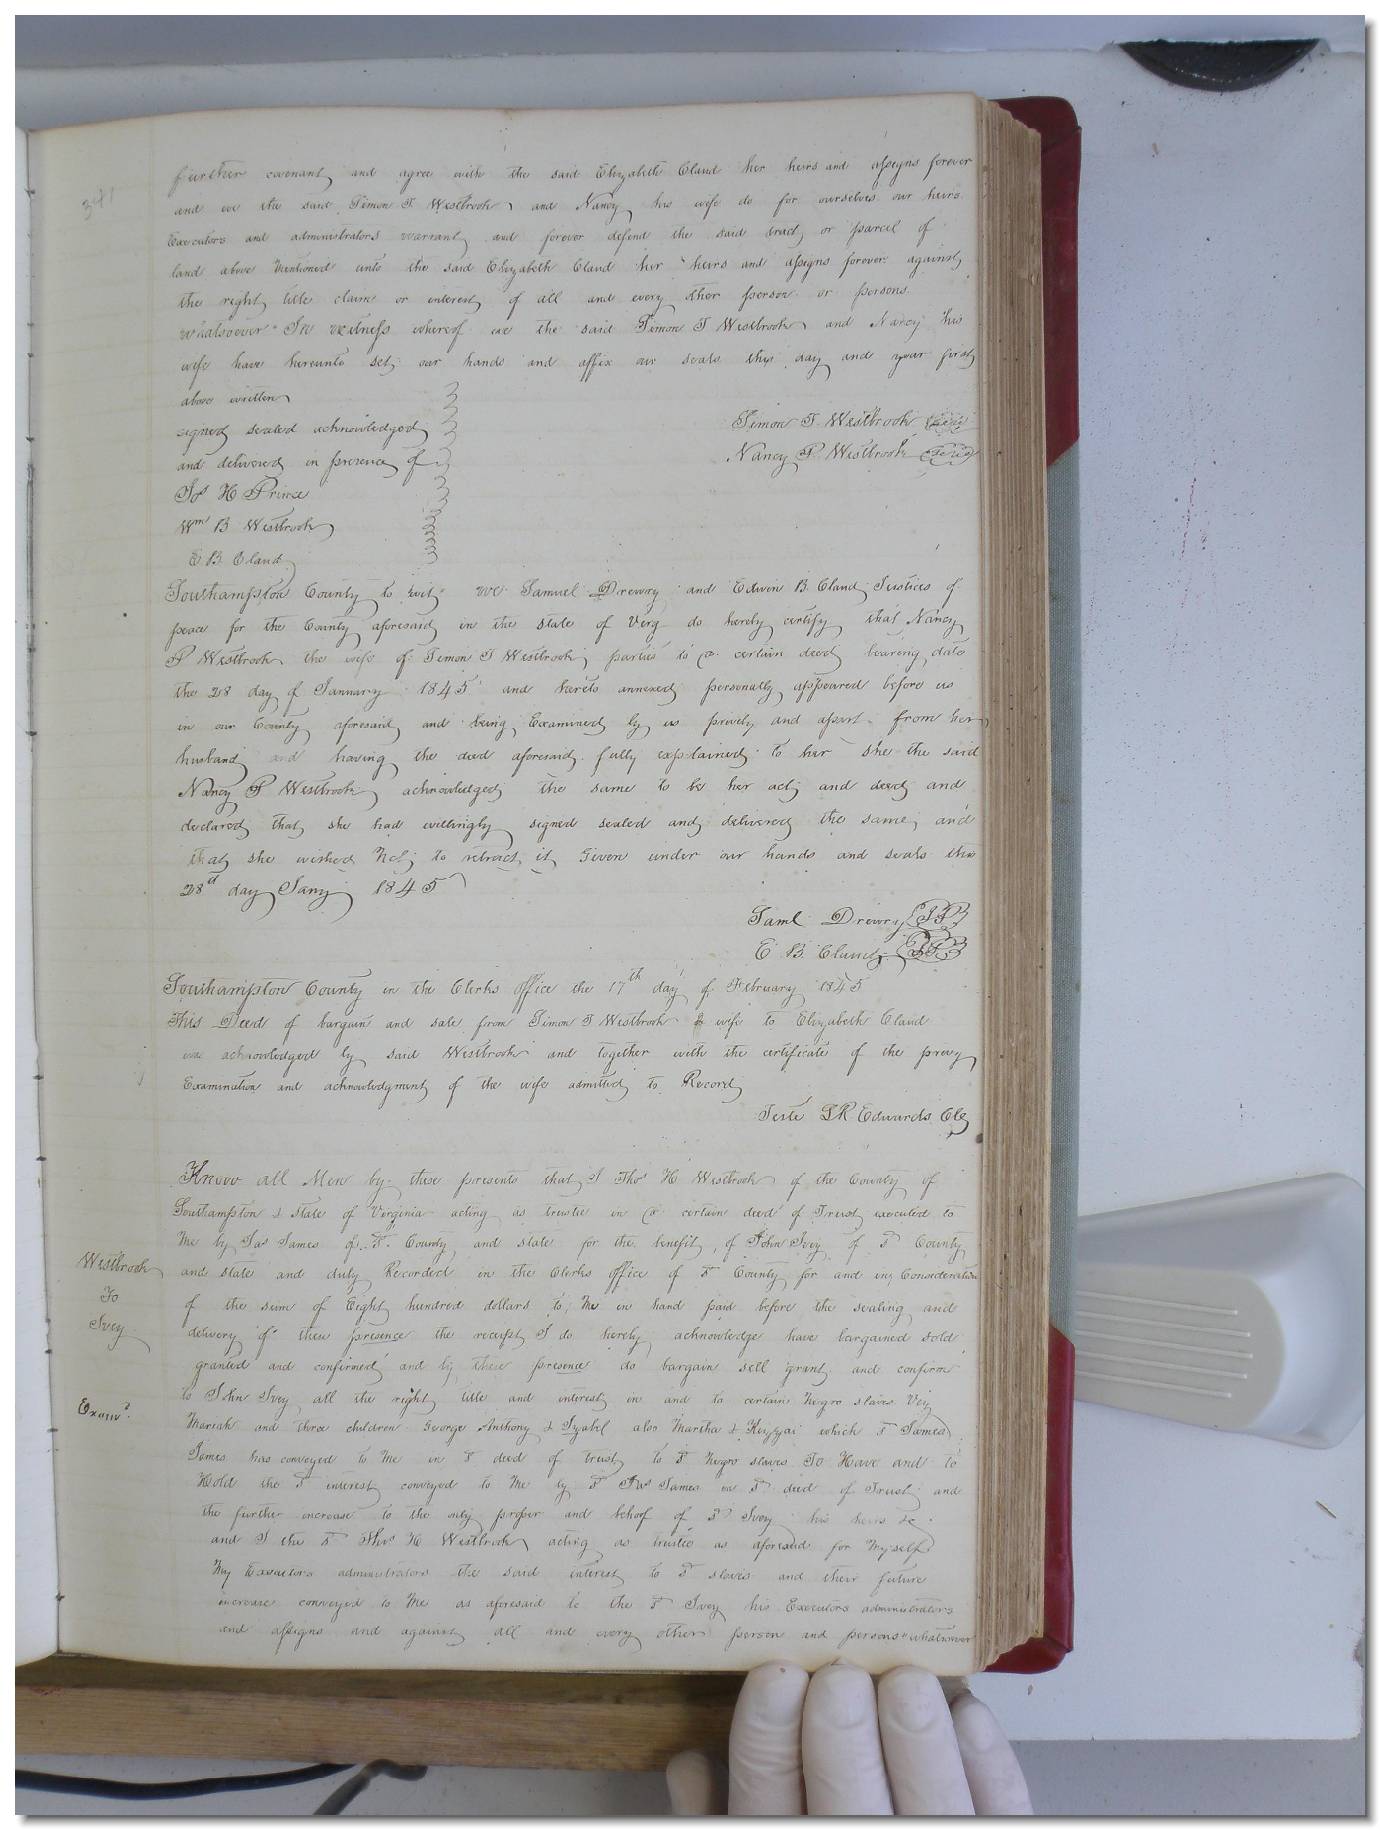 341
further covenant and agree with the said Elizabeth Claud her heirs and assigns forever
and we the said Simon T Westbrook and Nancy his wife do for ourselves our heirs
Executors and administrators warrant and forever defend the said tract or parcel of
land above mentioned unto the said Elizabeth Claud her heirs and assigns forever against
the right title claim or interest of all and every other person or persons
whatsoever In witness whereof we the said Simon T Westbrook and Nancy his
wife have hereunto set our hands and affix our seals this day and year first
above written
signed sealed acknowledged
Simon T. Westbrook Seal
and delivered in presence of
Nancy P Westbrook Seal
Jos H Prince
Wm B Westbrook
E B Claud
Southampton County to wit We Samuel Drewry and Edwin B. Claud Justices of
peace for the County aforesaid in the state of Verg do hereby certify that Nancy
P Westbrook the wife of Simon T Westbrook parties to a certain deed bearing date
the 28 day of January 1845 and hereto annexed personally appeared before us
in our County aforesaid and being Examined by us privily and apart from her
husband and having the deed aforesaid fully explained to her she the said
Nancy P Westbrook acknowledged the same to be her act and deed and
declared that she had willingly signed sealed and delivered the same and
that she wished Not to retract it Given under our hands and seals this
28d day Jany 1845
Saml Drewry
E B. Claud
Southampton County in the Clerks office the 17th day of February 1845
This Deed of bargain and sale from Simon T Westbrook & wife to Elizabeth Claud
was acknowledged by said Westbrook and together with the certificate of the privy
Examination and acknowledgment of the wife admitted to Record
Teste LR Edwards Clk
Know all Men by these presents that I Thos H Westbrook of the County of
Southampton & state of Virginia acting as trustee in a certain deed of Trust executed to
Me by Jas James of sd. County and state for the benefit of John Ivey of sd County
Westbrook
and state and duly Recorded in the Clerks office of sd County for and in Consideration
To
of the sum of Eight hundred dollars to Me in hand paid before the sealing and
Ivey
delivery of these presence the receipt I do hereby acknowledge have bargained sold
granted and confirmed and by these presence do bargain sell grant and confirm
to John Ivey all the right title and interest in and to certain Negro slaves Viz
Examd.
Mariah and three children George Anthony & Izabel also Martha & Kizzai which sd James
James has conveyed to Me in sd deed of trust to sd Negro slaves To Have and to
Hold the sd interest conveyed to Me by sd Jas James in sd deed of Trust and
the further increase to the only proper and behoof of sd Ivey his heirs &c
and I the sd Thos H Westbrook acting as trustee as aforesaid for Myself
My Executors administrators the said interest to sd slaves and their future
increase conveyed to Me as aforesaid to the sd Ivey his Executors administrators
and assigns and against all and every other person and persons whatsoever